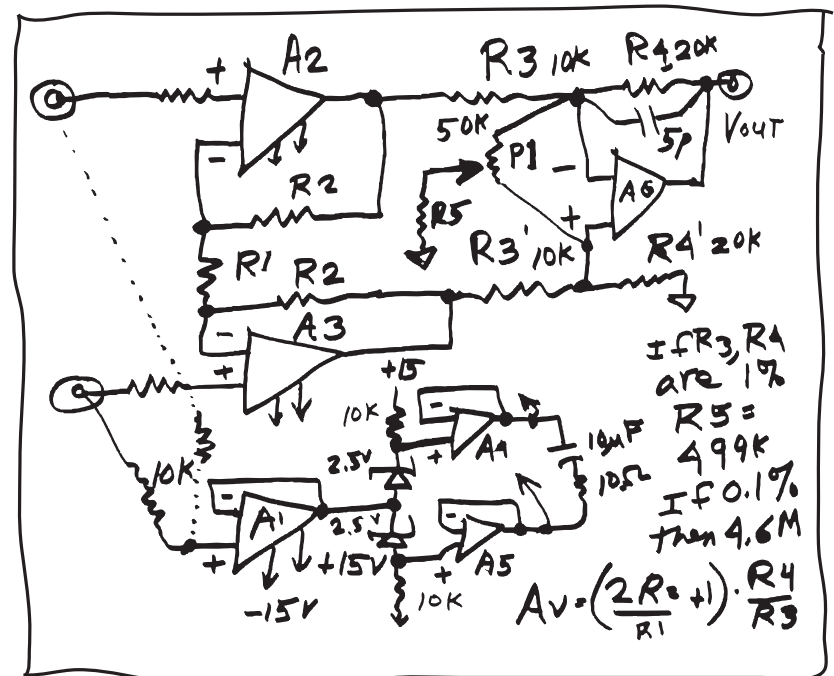 + A2
R3 10K
R4 20K
50K
5P
Vout
P1
-
-
A6
+
R2
R5
R3' 10K
R4' 20K
R1
R2
-
A3
+
+15
10K
-
A4
+
10µF
10Ω
2.5V
10K
-
A1
+
2.5V
+15V
-
A5
+
-15V
10K
If R3, R4
are 1%
R5 =
499K
If 0.1%
then 4.6M
Av = (2R2/R1 + 1) · R4/R3